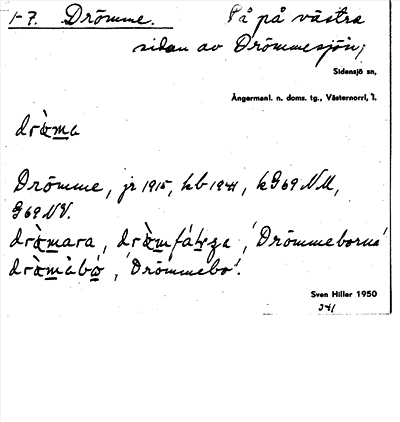 1-7. Drömme. På på västra
sidan av Drömmesjön;
Sidensjö sn,
Ångermanl. n. doms. tg., Västernorrl, l.
drò̀m̲a
Drömme, jr 1915, kb 1941, kG69 NM,
G69 NV.
dròm̲ara, dròm̲fáļka, 'Drömmeborna'
dròm̲åbo, 'Drömmebo'.
Sven Hiller 1950
341